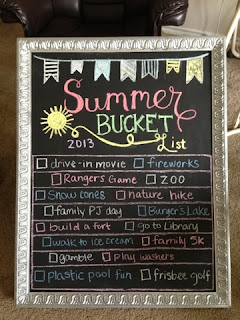 Summer
BUCKET
2013 List
drive-in movie fireworks
Rangers Game ZOO
Snow cones nature hike
family PJ day Burger's Lake
build a fort go to Library
walk to ice cream family 5k
gamble play washers
plastic pool fun frisbee golf